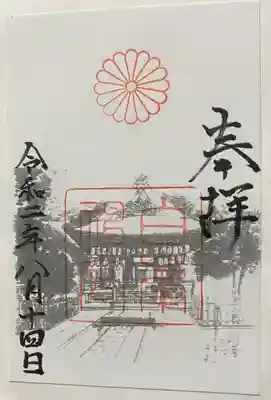 奉拝
令和二年八月十四日